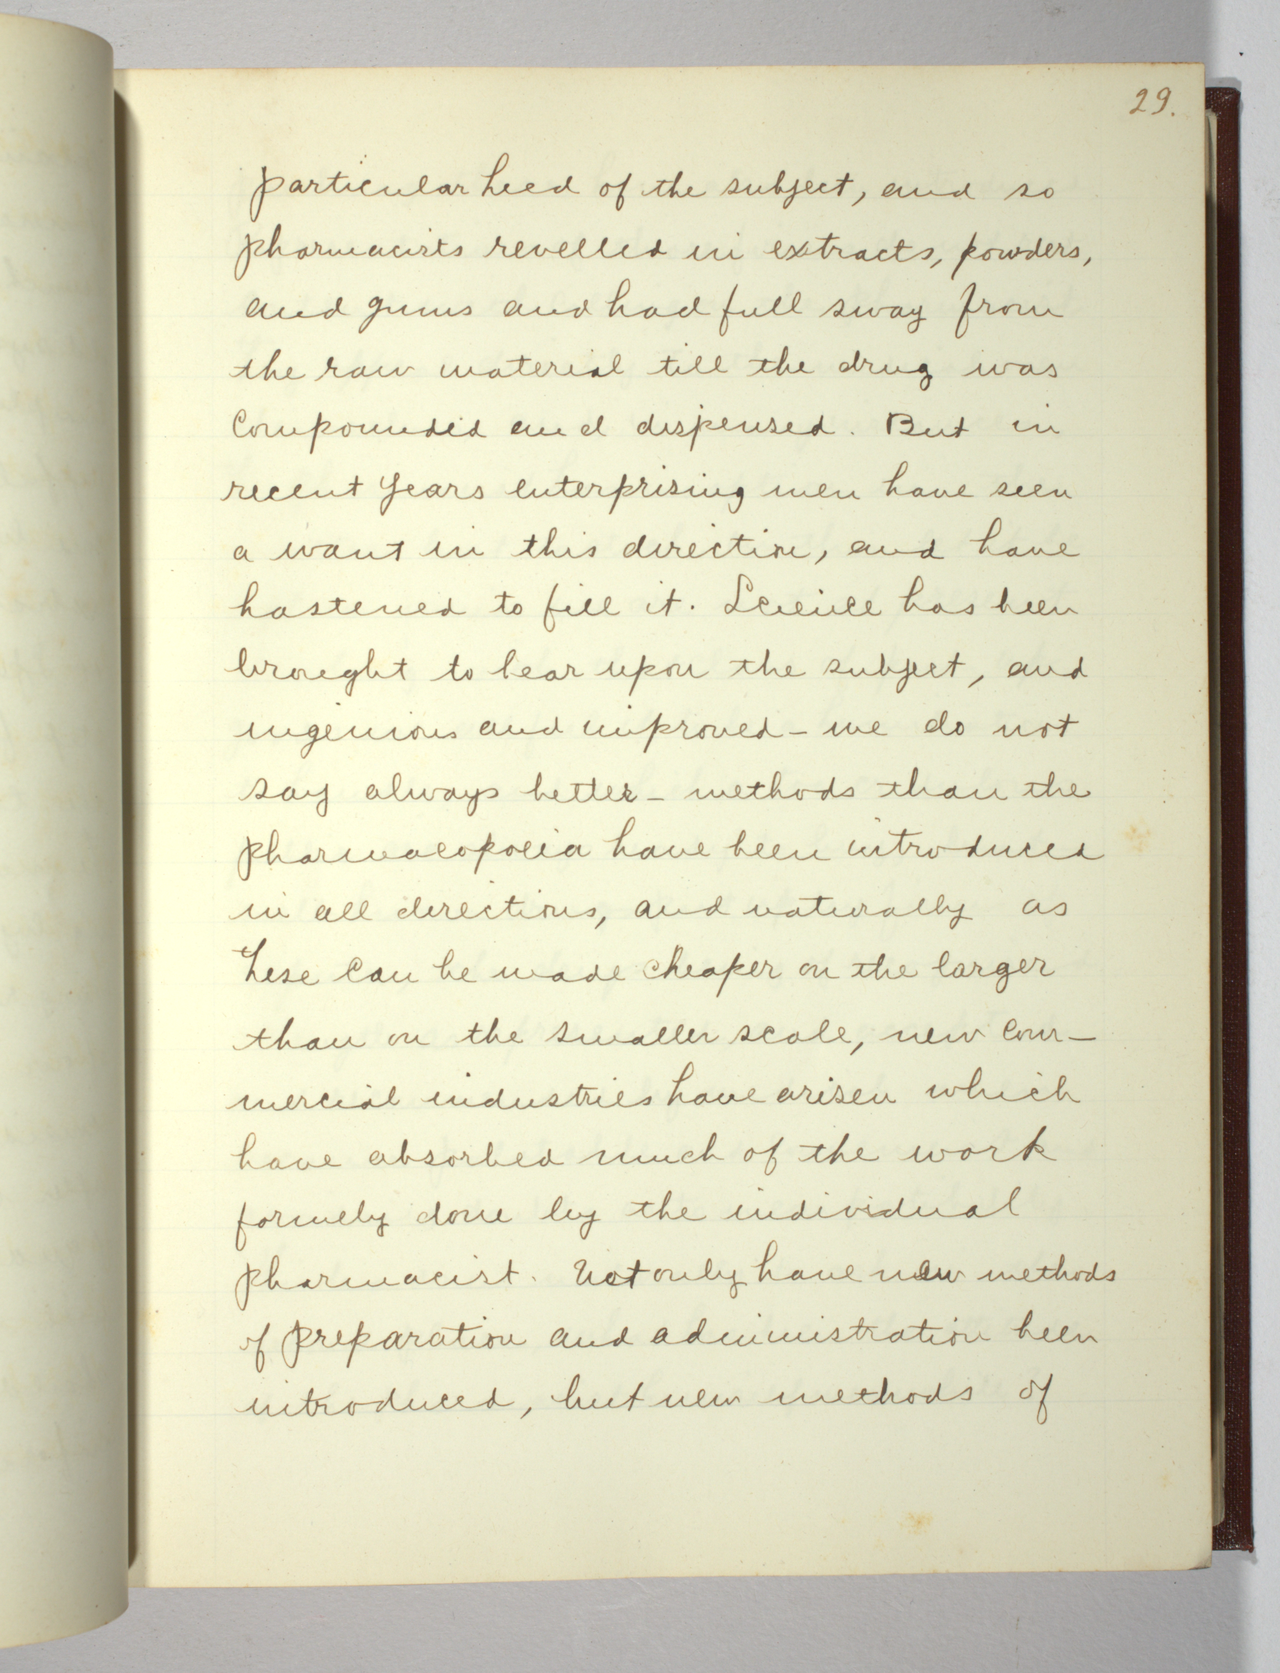 29.
particular heed of the subject, and so
pharmacists revelled in extracts, powders,
and gums and had full sway from
the raw material till the drug was
compounded and dispensed. But in
recent years enterprising men have seen
a want in this direction, and have
hastened to fill it. Science has been
brought to bear upon the subject, and
ingenious and improved - we do not
say always better - methods than the
pharmacopoeia have been introduced
in all directions, and naturally as
these can be made cheaper on the larger
than on the smaller scale, new com-
mercial industries have arisen which
have absorbed much of the work
formely done by the individual
pharmacist. Not only have new methods
of preparation and administration been
introduced, but new methods of